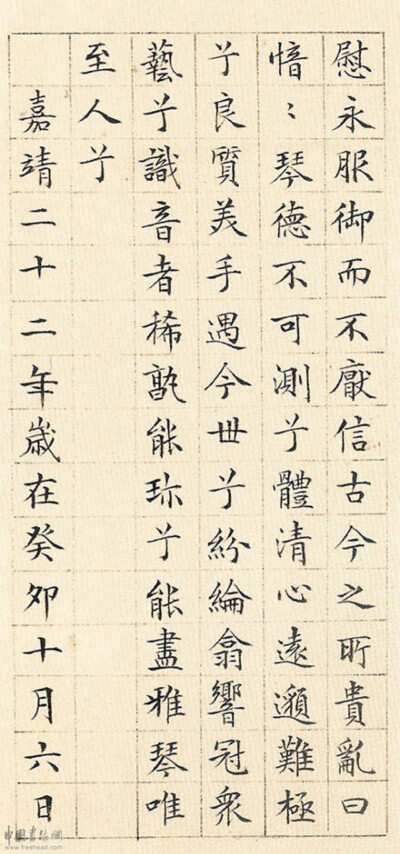 慰永服御而不厭信古今之所貴亂曰
愔〻琴德不可測兮體清心遠邈難極
兮良質美手遇今世兮紛綸翕響冠衆
藝兮識音者稀孰能珎兮能盡雅琴唯
至人兮
嘉靖二十二年歲在癸卯十月六日
中国书法网
www.freehead.com